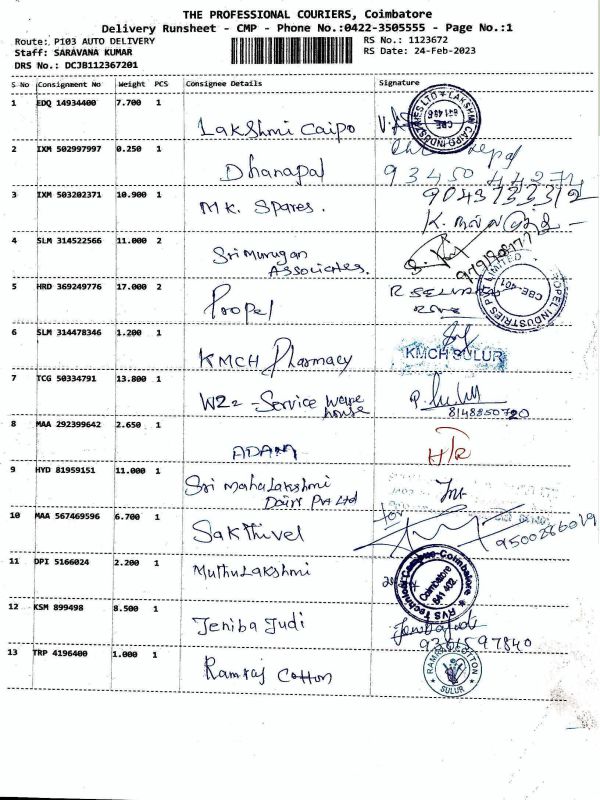 THE PROFESSIONAL COURIERS, Coimbatore
Delivery Runsheet - CMP - Phone No.:0422-3505555 - Page No.:1
Route: P103 AUTO DELIVERY
RS No.: 1123672
Staff: SARAVANA KUMAR
RS Date: 24-Feb-2023
DRS No.: DCJB112367201
S No Consignment No Weight PCS Consignee Details Signature
1 EDQ 14934400 7.700 1
Lakshmi Caipo
2 IXM 502997997 0.250 1
Dhanapal
3 IXM 503202371 10.900 1
9043733312
M.K. Spares.
4 SLM 314522566 11.000 2
Sri Murugan
Associates.
5 HRD 369249776 17.000 2
Propel
CBE-401
6 SLM 314478346 1.200 1
KMCH Pharmacy
KMCH SULUR
7 TCG 50334791 13.800 1
W22 - Service ware
house
8148850720
8 MAA 292399642 2.650 1
ADAM
9 HYD 81959151 11.000 1
Sri Mahalakshmi
Dairy Pvt Ltd
10 MAA 567469596 6.700 1
for
Sakthivel
9500286019
11 DPI 5166024 2.200 1
Muthulakshmi
RVS Technical Campus-Coimbatore
Coimbatore
641 402
12 KSM 899498 8.500 1
Jeniba Judi
Jeniba Judi
13 TRP 4196400 1.000 1
Ramraj Cotton
RAMRAJ COTTON
SULUR